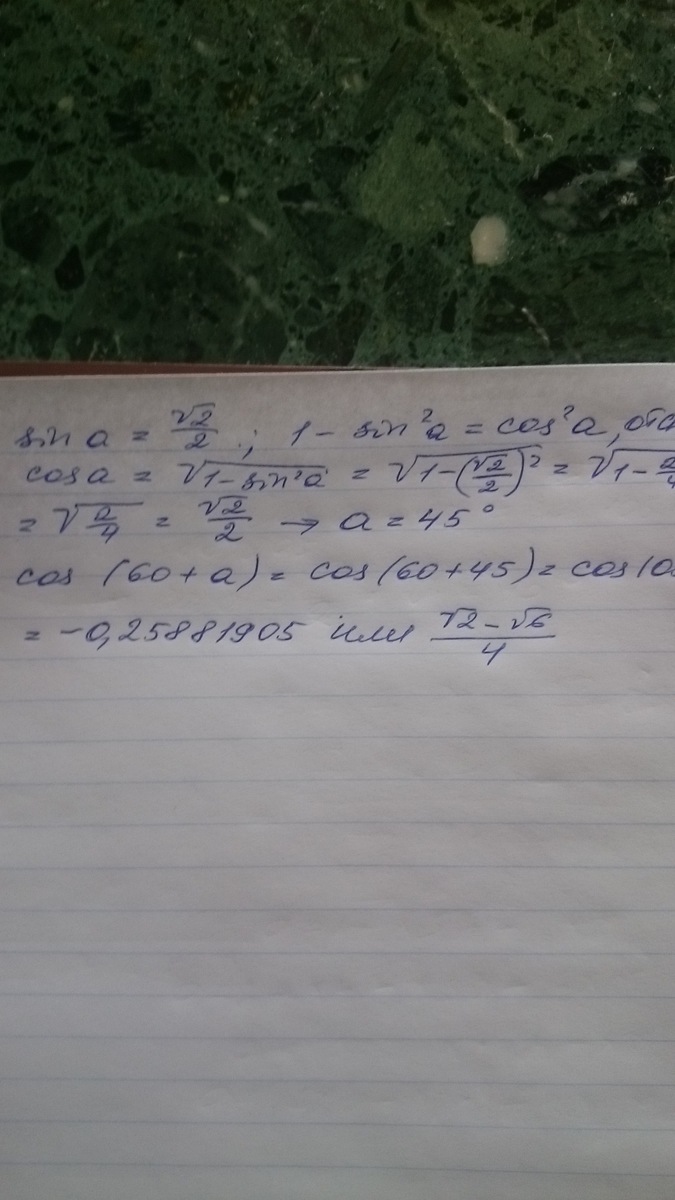 sin a = √2/2 ; 1 - sin²a = cos²a,
cos a = √(1 - sin²a) = √(1 - (√2/2)²) = √(1 - 2/4
= √(2/4) = √2/2 → a = 45°
cos (60 + a) = cos (60 + 45) = cos 10
= -0,25881905 или (√2 - √6)/4